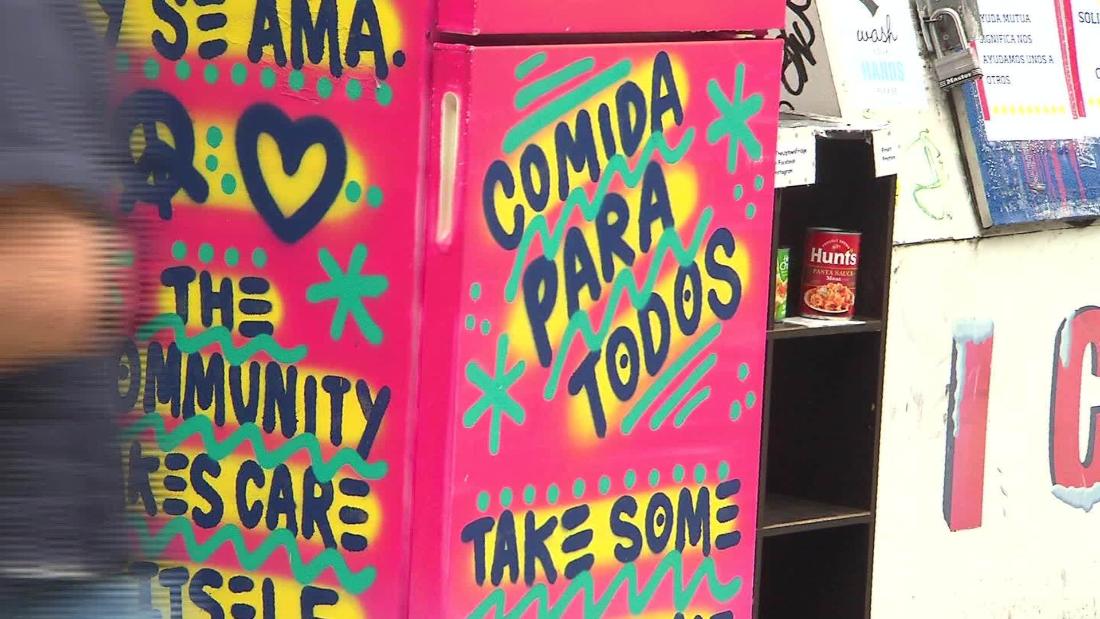 SE AMA.
THE
OMMUNITY
KES CARE
ITSELF
COMIDA
PARA
TODOS
TAKE SOME
wash
HANDS
Hunt's
PASTA SAUCE
Meat
Master
AYUDA MUTUA
SIGNIFICA NOS
AYUDAMOS UNOS A
OTROS
SOLI
I C